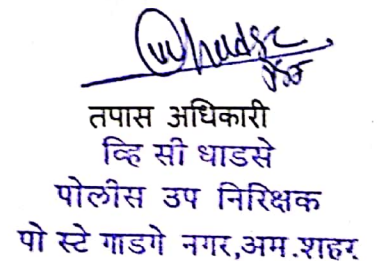 तपास अधिकारी
व्हि सी धाडसे
पोलीस उप निरिक्षक
पो स्टे गाडगे नगर,अम.शहर